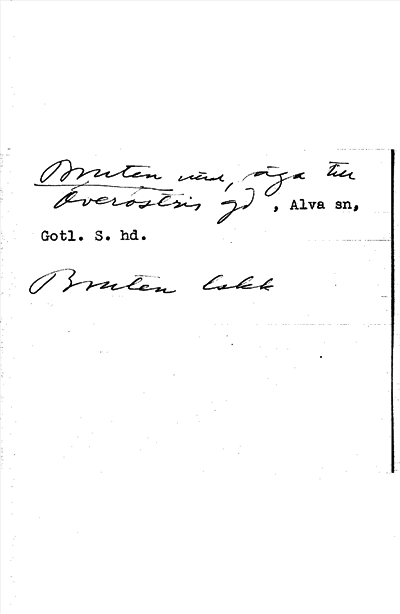 Bruten, äga till
Överöstris gd, Alva sn,
Gotl. S. hd.
Bruten